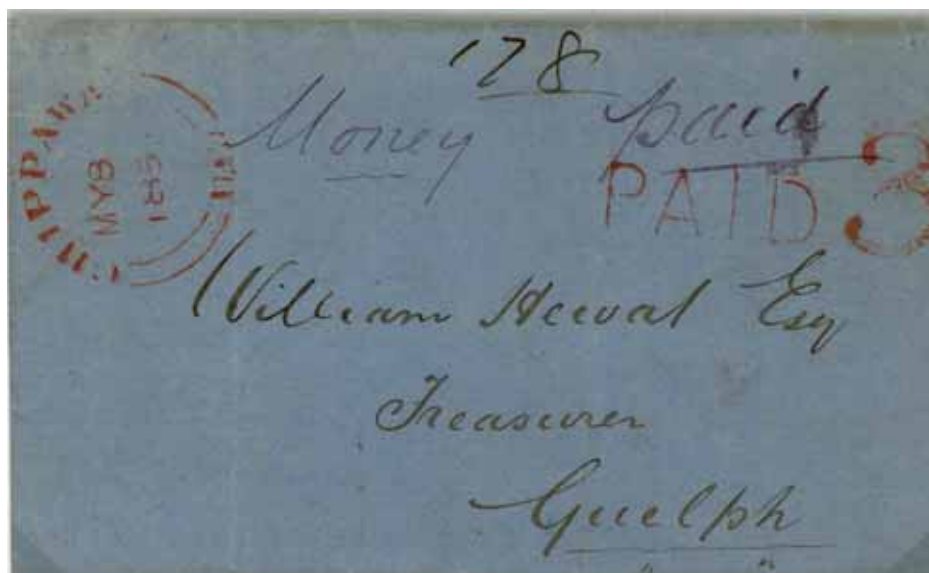 178
Money paid
PAID 3
CHIPPAWA
MY 8
185
William Hewat Esq
Treasurer
Guelph